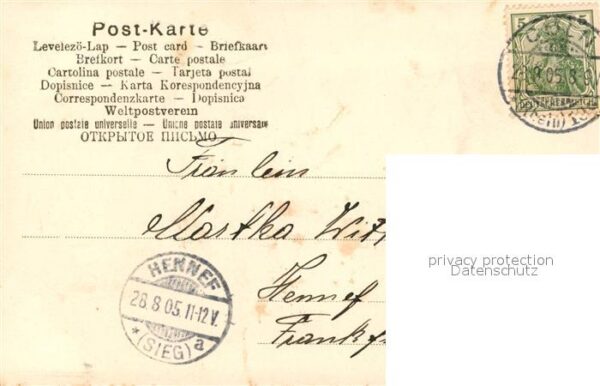 Post-Karte
Levelezö-Lap — Post card — Briefkaart
Brefkort — Carte postale
Cartolina postale — Tarjeta postal
Dopisnice — Karta Korespondencyjna
Correspondenzkarte — Dopisnica
Weltpostverein
Union postale universelle — Unione postale universale
ОТКРЫТОЕ ПИСЬМО
5 5
CÖLN
05. 8-9
(Rhein)
Fräulein
Martha Witt
privacy protection
Datenschutz
HENNEF
28.8.05.11-12V.
*(SIEG) a
Hennef
Frankf